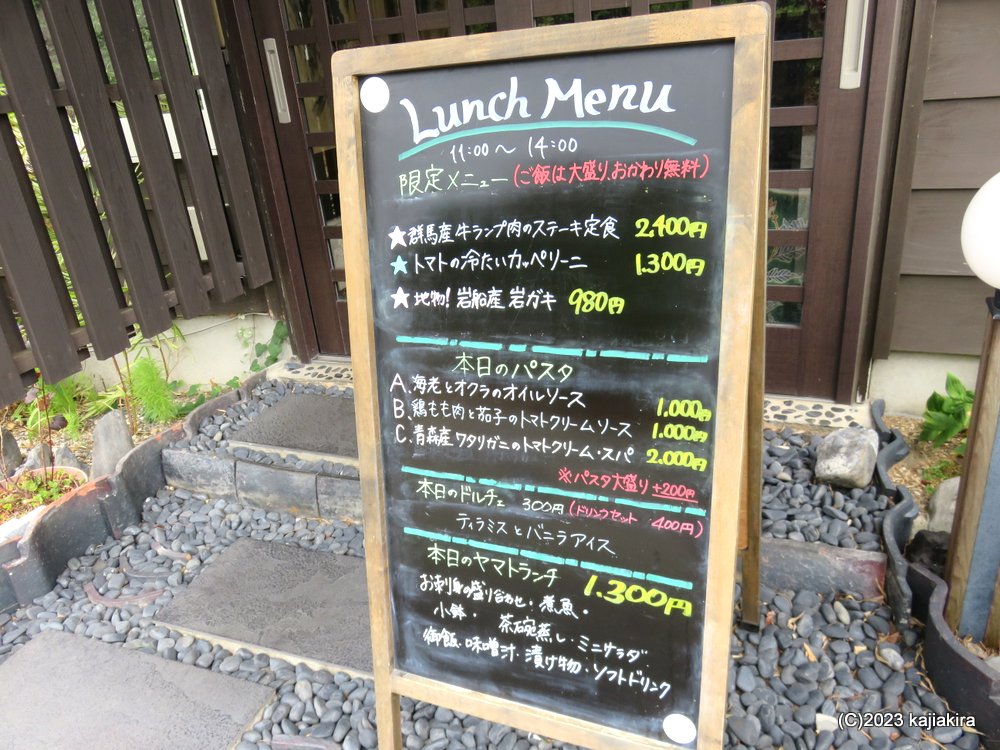 Lunch Menu
11:00～14:00
限定メニュー(ご飯は大盛り、おかわり無料)
★群馬産牛ランプ肉のステーキ定食 2,400円
★トマトの冷たいカッペリーニ 1.300円
★地物!岩船産岩ガキ 980円
本日のパスタ
A、海老とオクラのオイルソース 1,000円
B、鶏もも肉と茄子のトマトクリームソース 1.000円
C、青森産ワタリガニのトマトクリーム・スパ 2.000円
※パスタ大盛り+200円
本日のドルチェ 300円(ドリンクセット 400円)
ティラミスとバニラアイス
本日のヤマトランチ 1.300円
お刺身の盛り合わせ・煮魚・
小鉢・茶碗蒸し・ミニサラダ
御飯・味噌汁・漬け物・ソフトドリンク
(C)2023 kajiakira